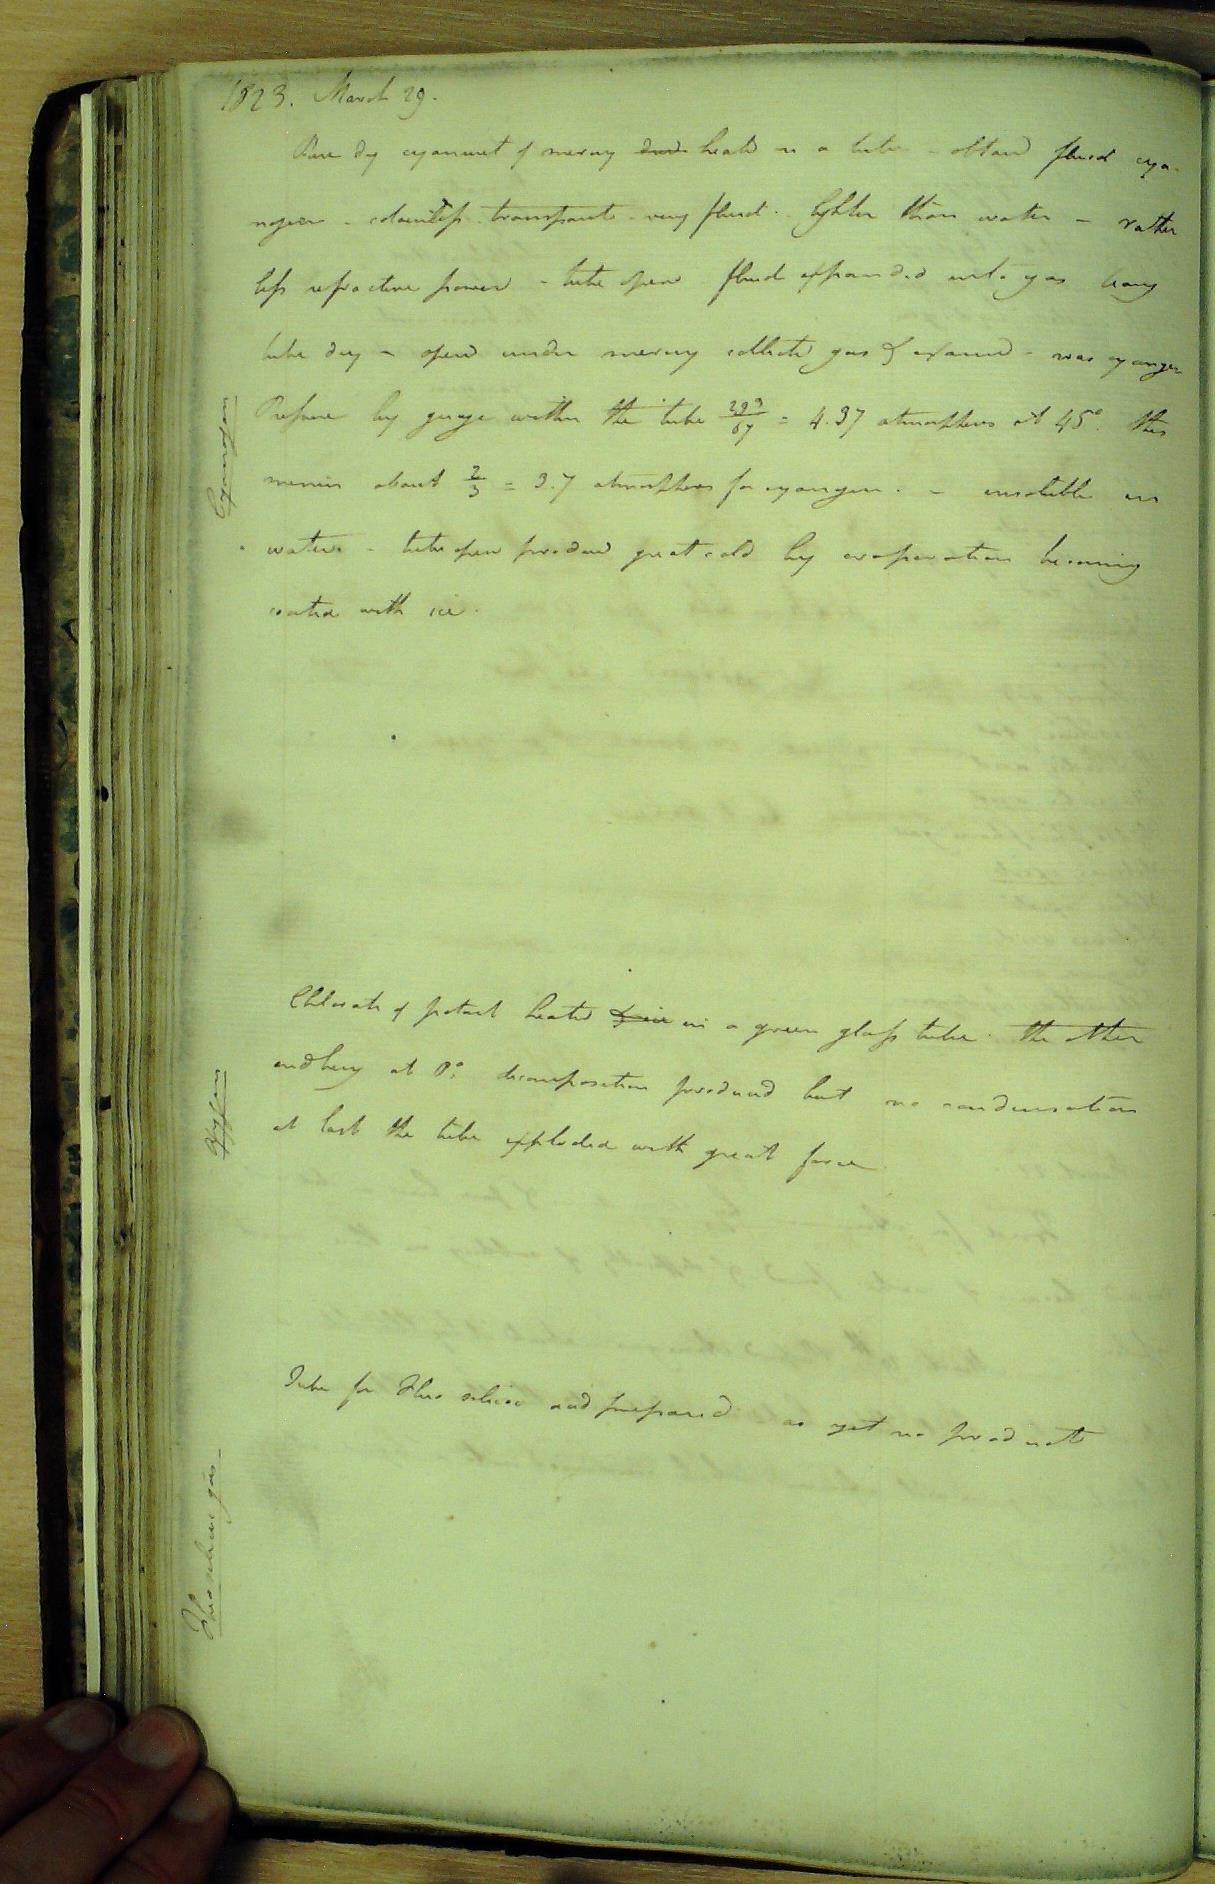 1823. March 29.
Pure dry cyanuret of mercury heated in a tube - obtained fluid cya-
nogen - colourless transparent - very fluid - lighter than water - rather
less refractive power - tube opened fluid expanded into gas leaving
tube dry - opened under mercury collected gas & examined - was cyanogen
Pressure by gauge within the tube 293/67 = 4.37 atmospheres at 45° this
minus about 2/3 = 3.7 atmospheres for cyanogen. - insoluble in
water - tube open produced great cold by evaporation becoming
coated with ice.
Cyanogen
Chlorate of potash heated in a green glass tube. the other
end being at 0°. decomposition produced but no condensation
at last the tube exploded with great force
Oxygen
Tube for Fluo silicic acid prepared as yet no product
Fluosilicic gas